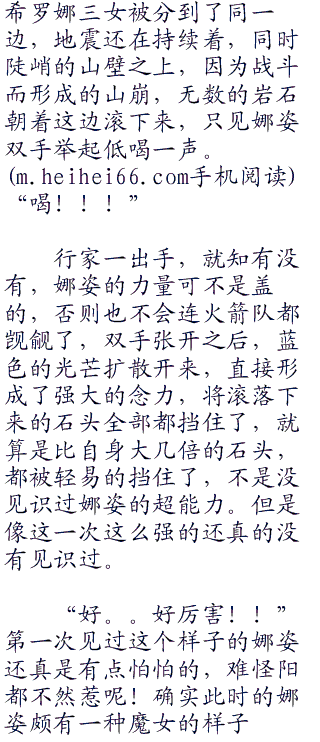 希罗娜三女被分到了同一
边，地震还在持续着，同时
陡峭的山壁之上，因为战斗
而形成的山崩，无数的岩石
朝着这边滚下来，只见娜姿
双手举起低喝一声。
(m.heihei66.com手机阅读)
“喝！！！”
行家一出手，就知有没
有，娜姿的力量可不是盖
的，否则也不会连火箭队都
觊觎了，双手张开之后，蓝
色的光芒扩散开来，直接形
成了强大的念力，将滚落下
来的石头全部都挡住了，就
算是比自身大几倍的石头，
都被轻易的挡住了，不是没
见识过娜姿的超能力。但是
像这一次这么强的还真的没
有见识过。
“好。。好厉害！！”
第一次见过这个样子的娜姿
还真是有点怕怕的，难怪阳
都不然惹呢！确实此时的娜
姿颇有一种魔女的样子